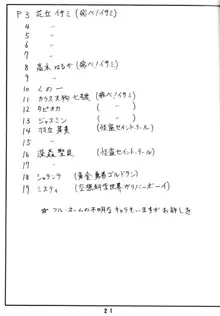 P3 花丘イサミ (飛べ!イサミ)
4 〃
5 〃
6 〃
7 〃
8 高木はるか (飛べ!イサミ)
9 〃
10 くの一
11 カラス天狗 七号 (飛べ!イサミ)
12 タピオカ ( 〃 )
13 ジャスミン ( 〃 )
14 羽丘芽美 (怪盗セイント・テール)
15 〃
16 深森聖良 (怪盗セイント・テール)
17 〃
18 シャランラ (黄金勇者ゴルドラン)
19 ミスティ (空想科学世界ガリバーボーイ)
☆フル・ネームの不明なキャラもいますがお許しを
21